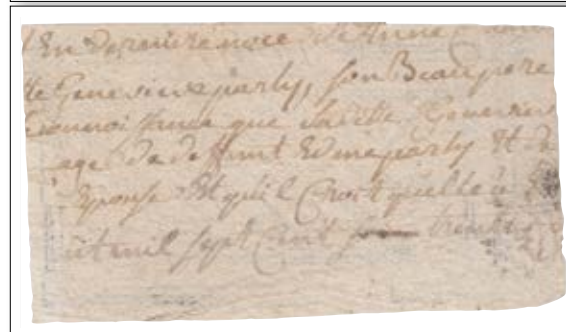 En derniere noce de Anne
de Genevieve parly, son Beaupere
Connoissance que laditte Genevieve
age de deffunt Edme parly Et de
Eponse Et quil Croit quelle a
mil sept Cent trente